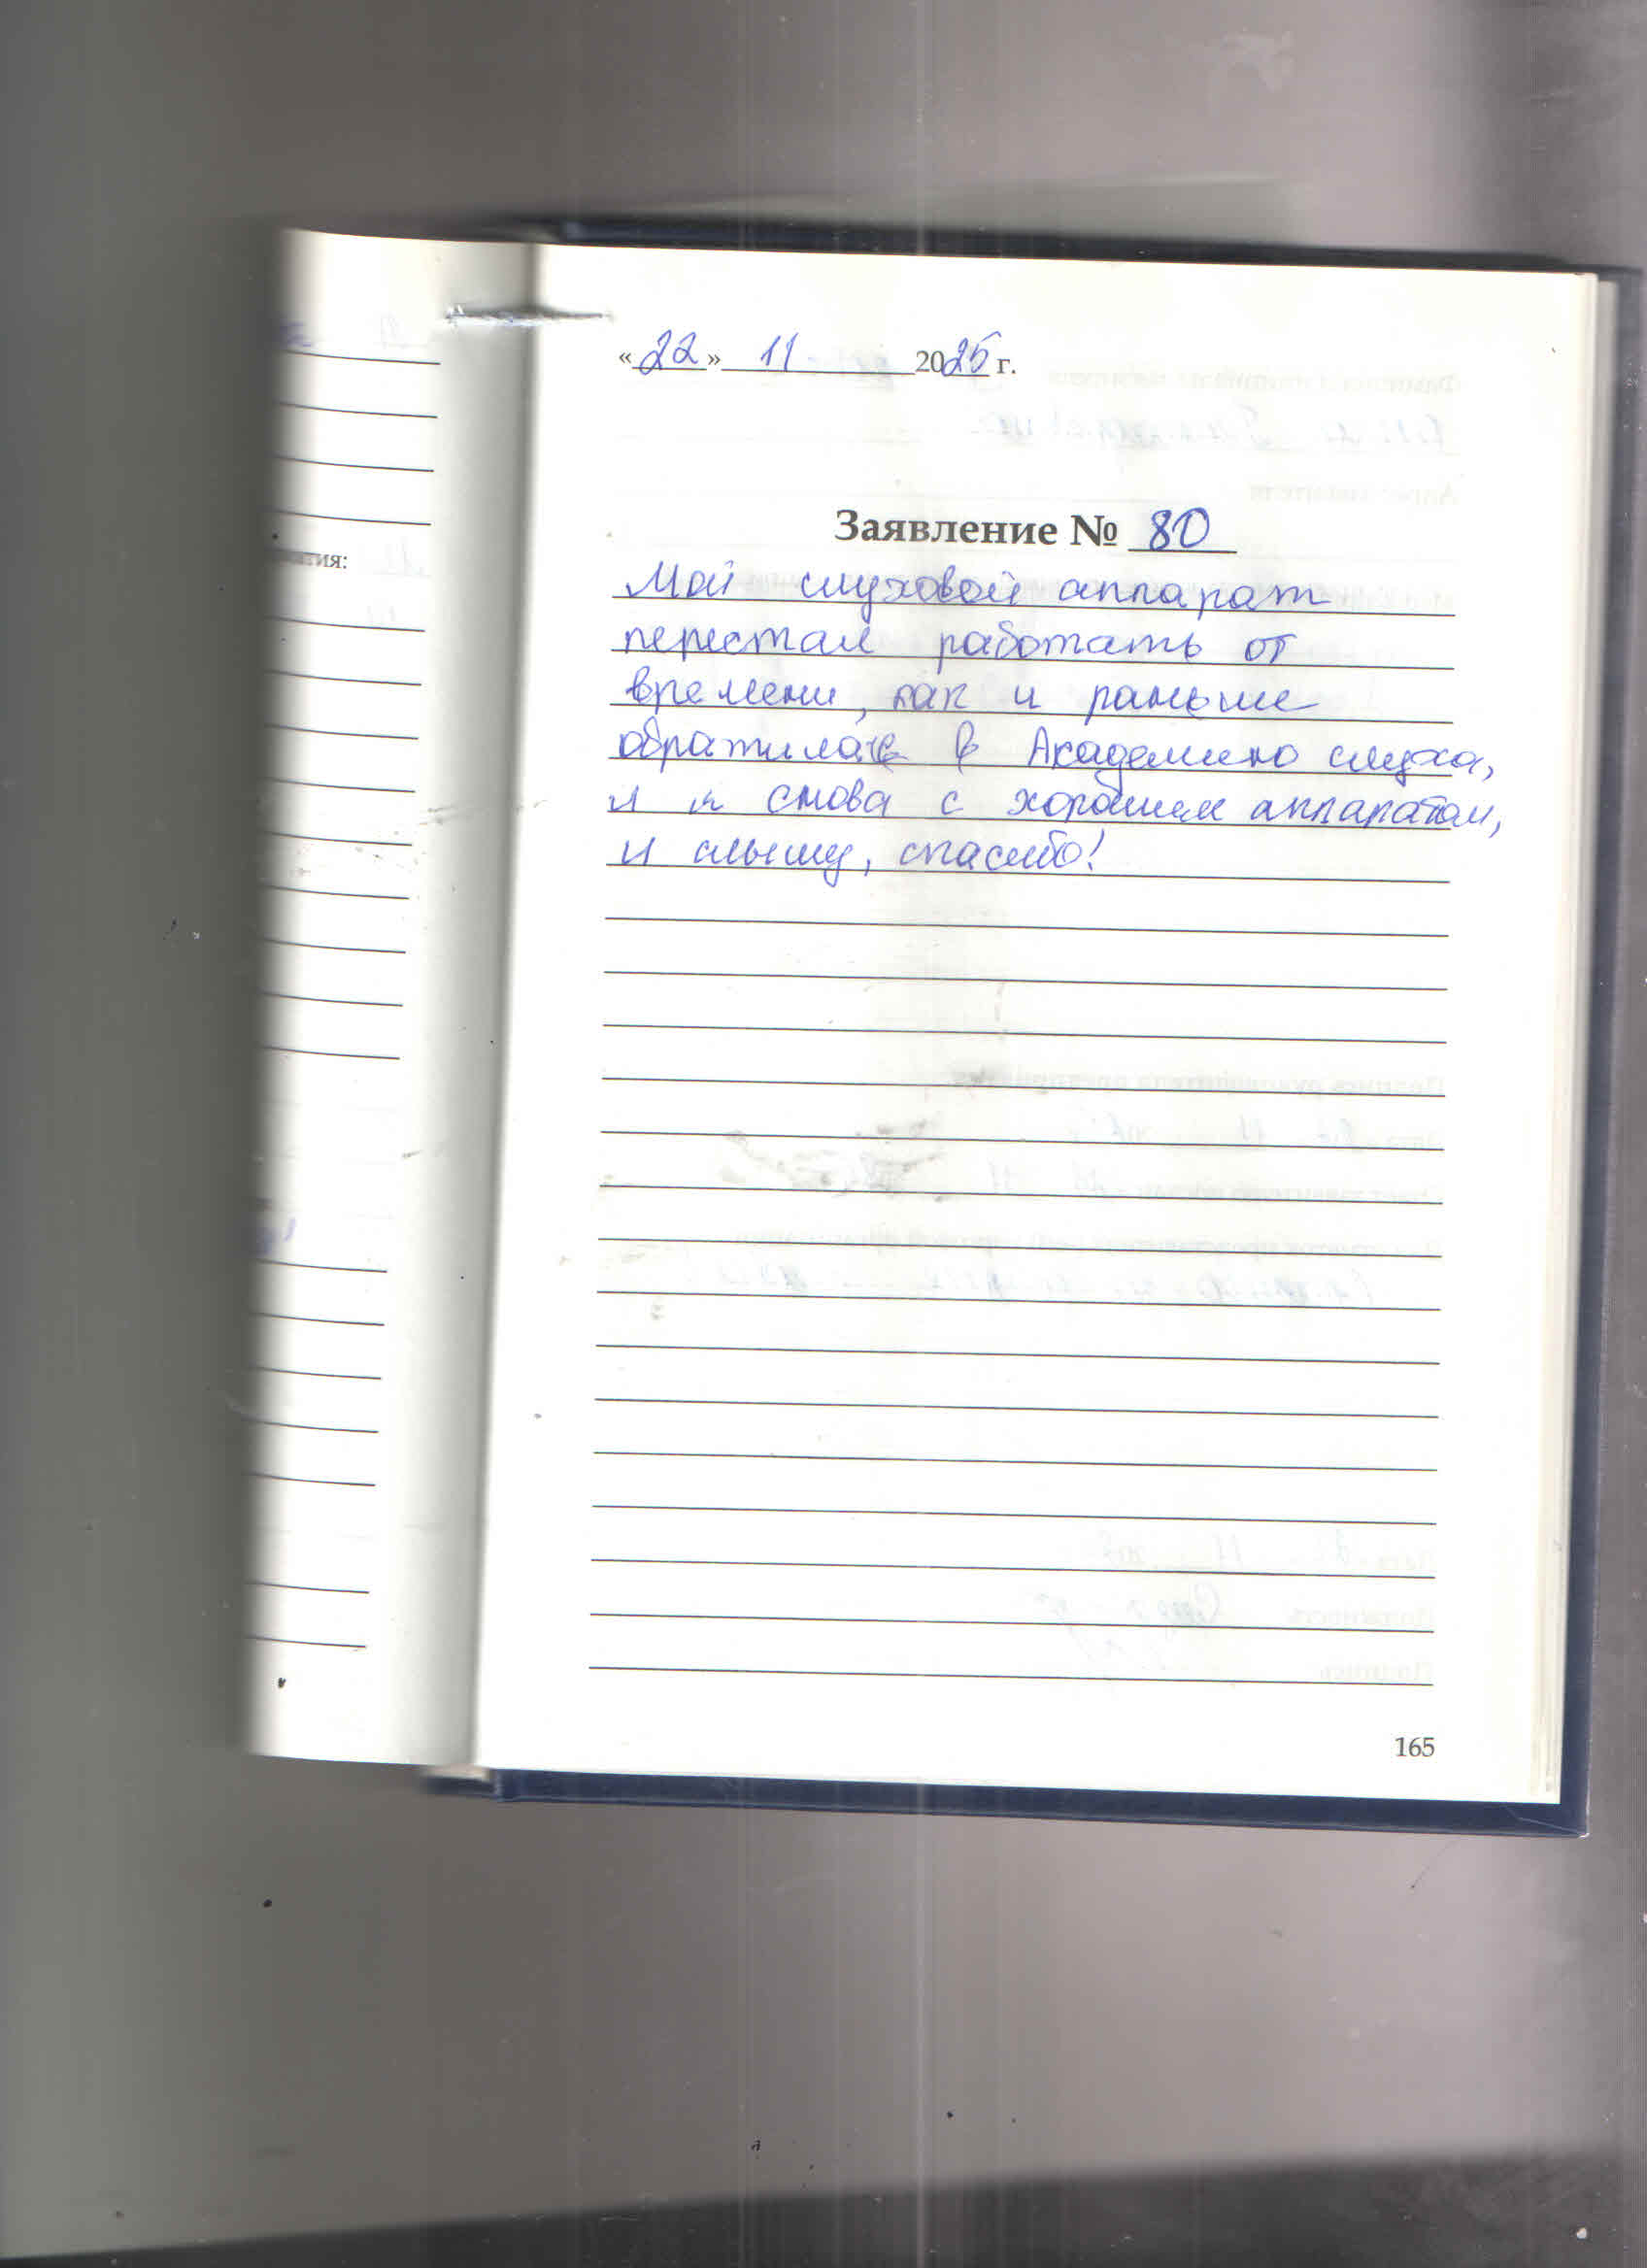 «22» 11 2025 г.
Заявление № 80
Мой слуховой аппарат
перестал работать от
времени, как и раньше
обратилась в Академию слуха,
и я снова с хорошим аппаратом,
и слышу, спасибо!
165